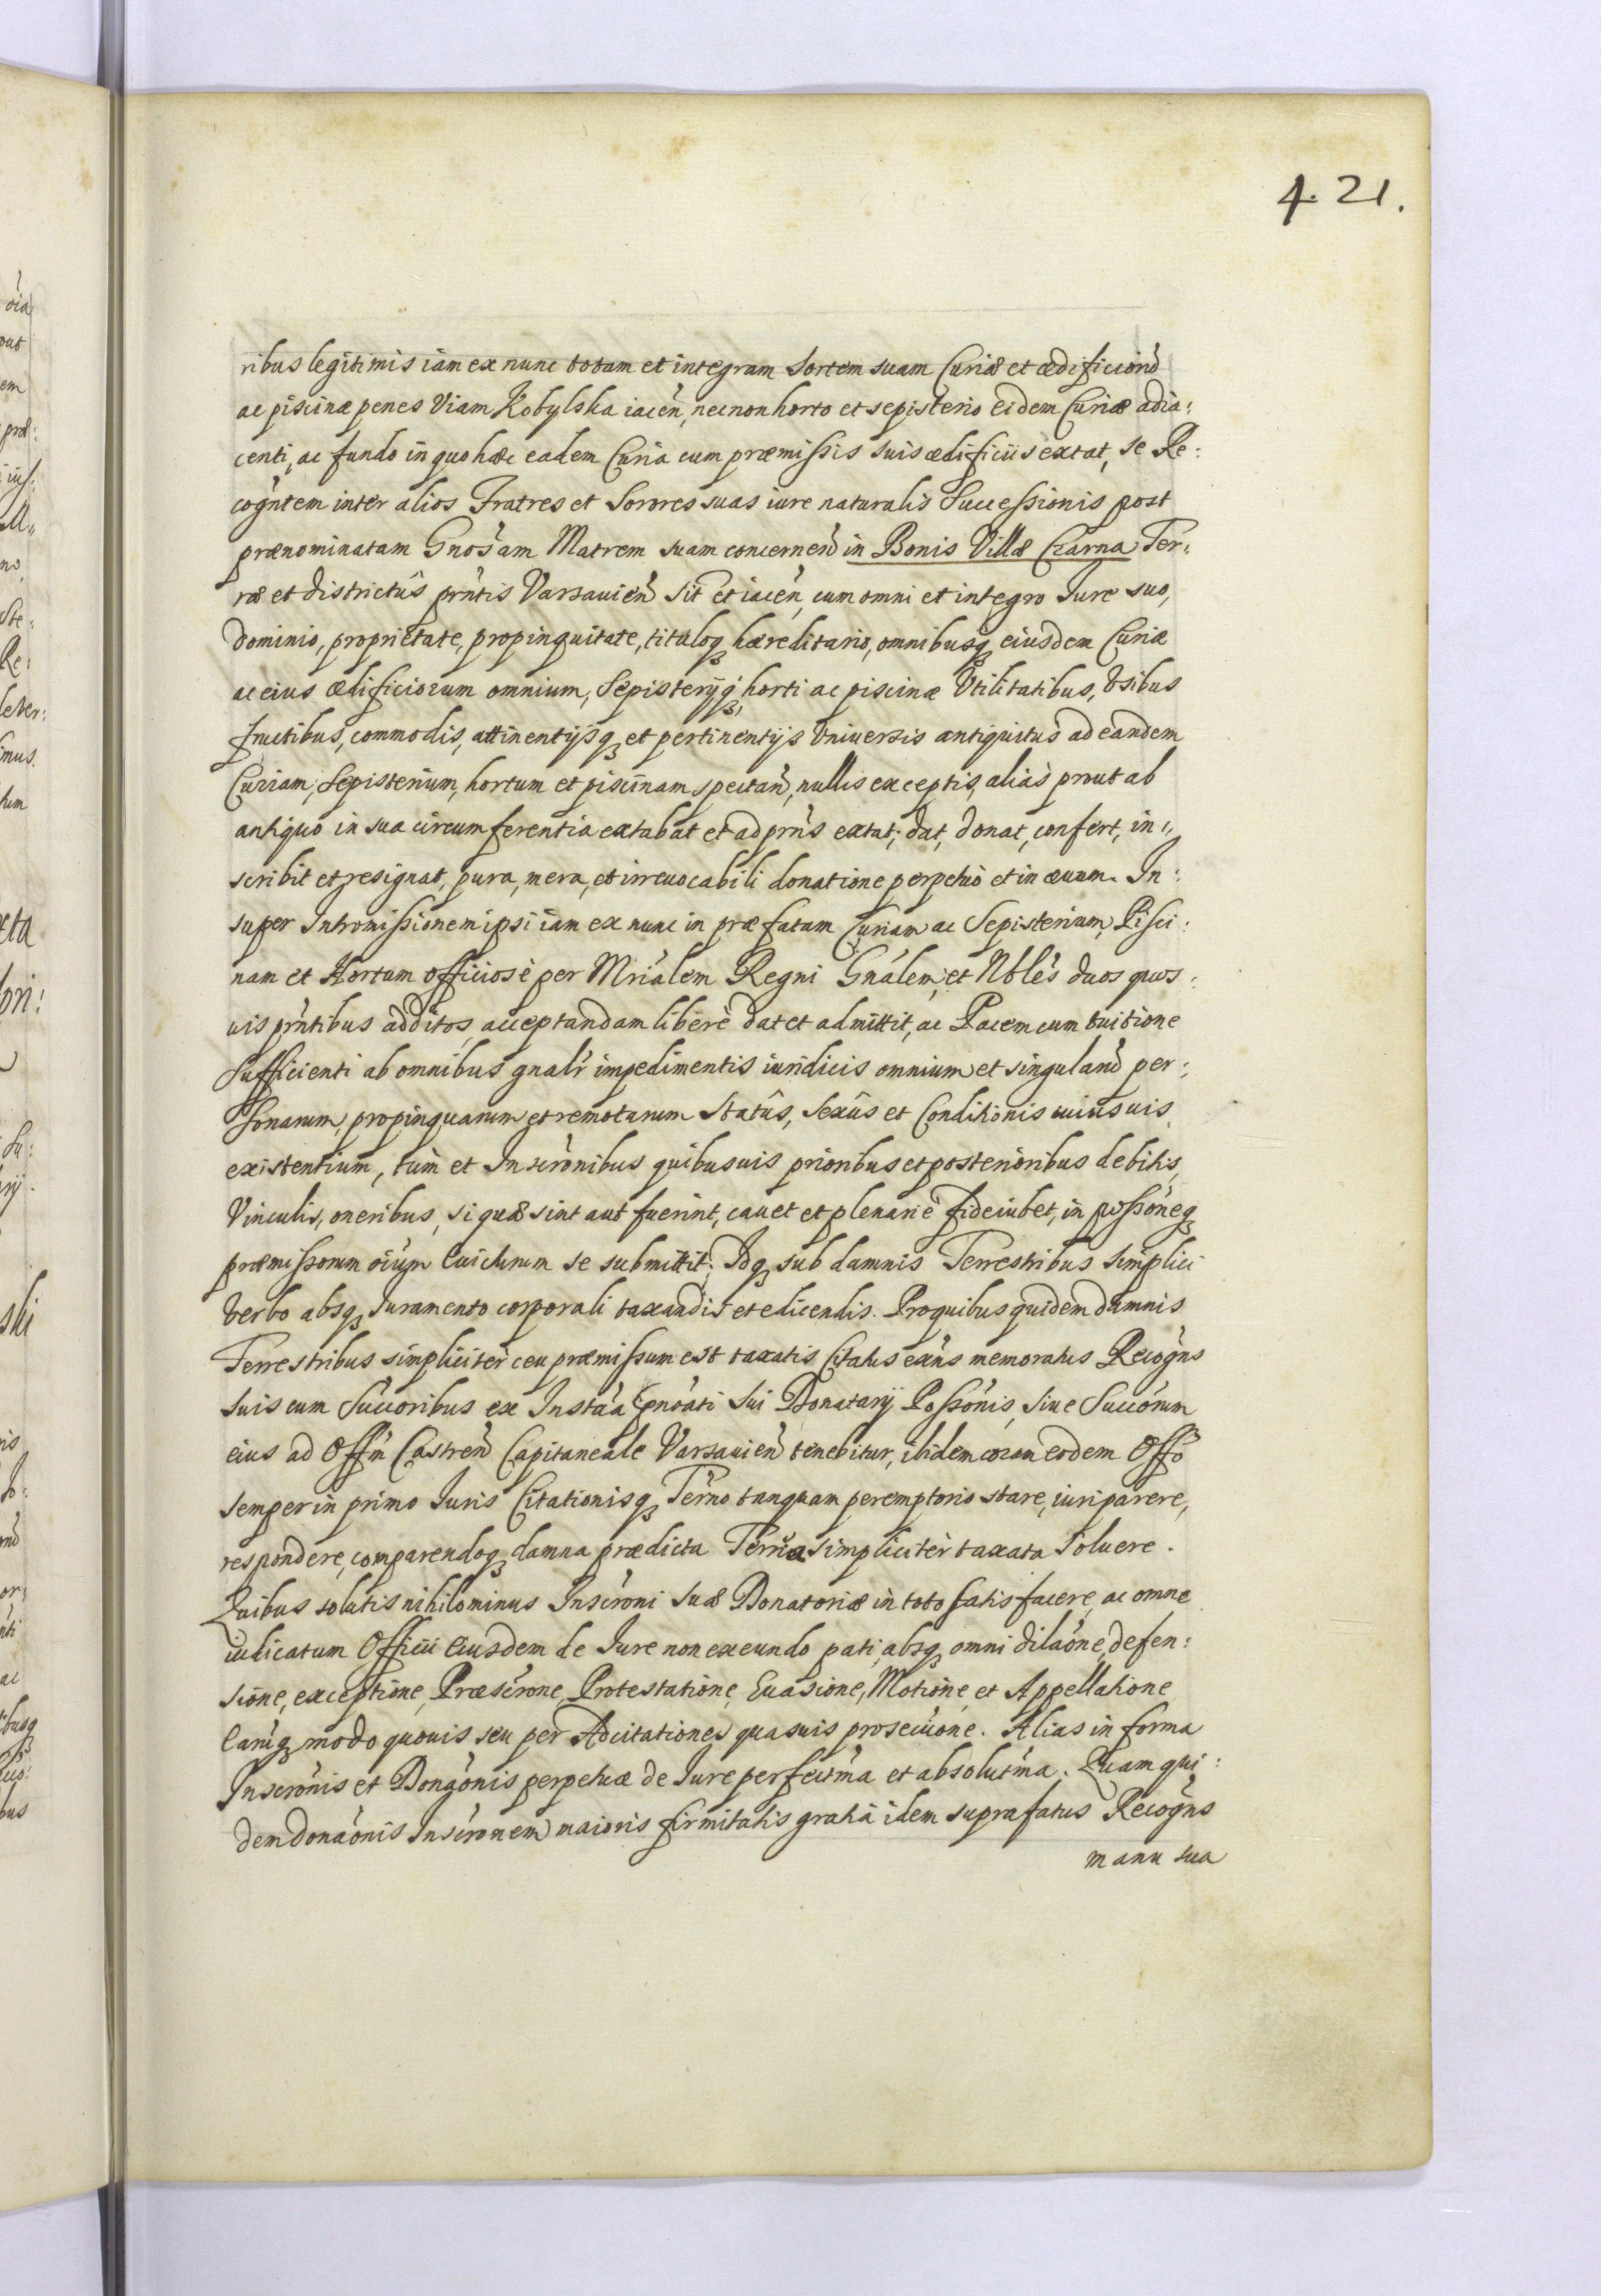 4. 21.
ribus legitimis iam ex nunc totam et integram Sortem suam Curiæ et ædificiorũ
ac piscinæ penes Viam Kobylska iaceñ, necnon horto et sepisterio eidem Curiæ adia:
centi, ac fundo in quo hæc eadem Curia cum præmissis suis ædificiis extat, se Re:
cogñtem inter alios Fratres et Sorores suas iure naturalis Successionis post
prænominatam Gnosam Matrem suam concerneñ in Bonis Villæ Czarna Ter:
ræ et districtûs prñtis Varsavieñ sit et iaceñ, cum omni et integro Iure suo,
dominio, proprietate, propinquitate, tituloq₃ hæreditario, omnibusq₃ eiusdem Curiæ
ac eius ædificiorum omnium, Sepisterijq₃, horti ac piscinæ Vtilitatibus, Vsibus
fructibus, commodis, attinentijsq₃ et pertinentijs Vniversis antiquitus ad eandem
Curiam, Sepisterium, hortum et piscinam spectañ, nullis exceptis, alias prout ab
antiquo in sua circumferentia extabat et ad prñs extat; dat, donat, confert, in:
scribit et resignat, pura, mera, et irreuocabili donatione perpetuò et in æuum. In:
super Intromissionem ipsi iam ex nunc in præfatam Curiam ac Sepisterium, Pisci:
nam et Hortum officiosè per Mriálem Regni Gnálem, et Nbles duos quos:
uis prñtibus additos, acceptandam liberè dat et admittit, ac Pacem cum tuitione
Sufficienti ab omnibus gnalr impedimentis iuridicis omnium et singularũ per:
sonarum, propinquarum et remotarum Statûs, Sexûs et Conditionis cuiusuis
existentium, tum et Inscronibus quibusuis prioribus et posterioribus debitis,
Vinculis, oneribus, si quæ sint aut fuerint, cauet et plenariè fideiubet, in possoneq₃
præmissorum oium Euicturum se submittit; Idq₃ sub damnis Terrestribus simplici
verbo absq₃ Iuramento corporali taxandis et edicendis. Pro quibus quidem damnis
Terrestribus simpliciter ceu præmissum est taxatis Citatus exñs memoratus Recogñs
suis cum Succoribus ex Instáa pnoáti sui Donatarij Possónis, siue Succórum
eius ad Offm Castreñ Capitaneale Varsavieñ tenebitur, ibidem coram eodem Offo
semper in primo Iuris Citationisq₃ Termo tanquam peremptorio stare, iuri parere,
respondere, comparendoq₃ damna prædicta Terria simpliciter taxata soluere.
Quibus solutis nihilominus Inscroni suæ Donatoriæ in toto satisfacere, ac omne
iudicatum Officii Eiusdem de Iure non exeundo pati, absq₃ omni dilaóne, defen:
sione, exceptione, Præscrone, Protestatione, Euasione, Motione et Appellatione
Earúq₃ modo quouis seu per Adcitationes quasuis prosecuóne. Alias in forma
Inscrónis et Donaónis perpetuæ de Iure perfectma et absolutma. Quam qui:
dem donaónis Inscronem maioris firmitatis gratiâ idem suprafatus Recogñs
manu sua